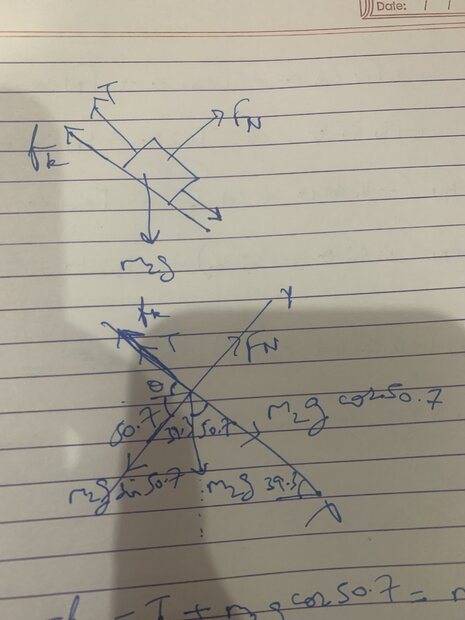 Date: / /
T
fk
FN
m2g
fk
T
y
FN
θ
50.7
39.3
50.7
m2g cos 50.7
m2g sin 50.7
m2g
39.3
- T + m2g cos 50.7 = m